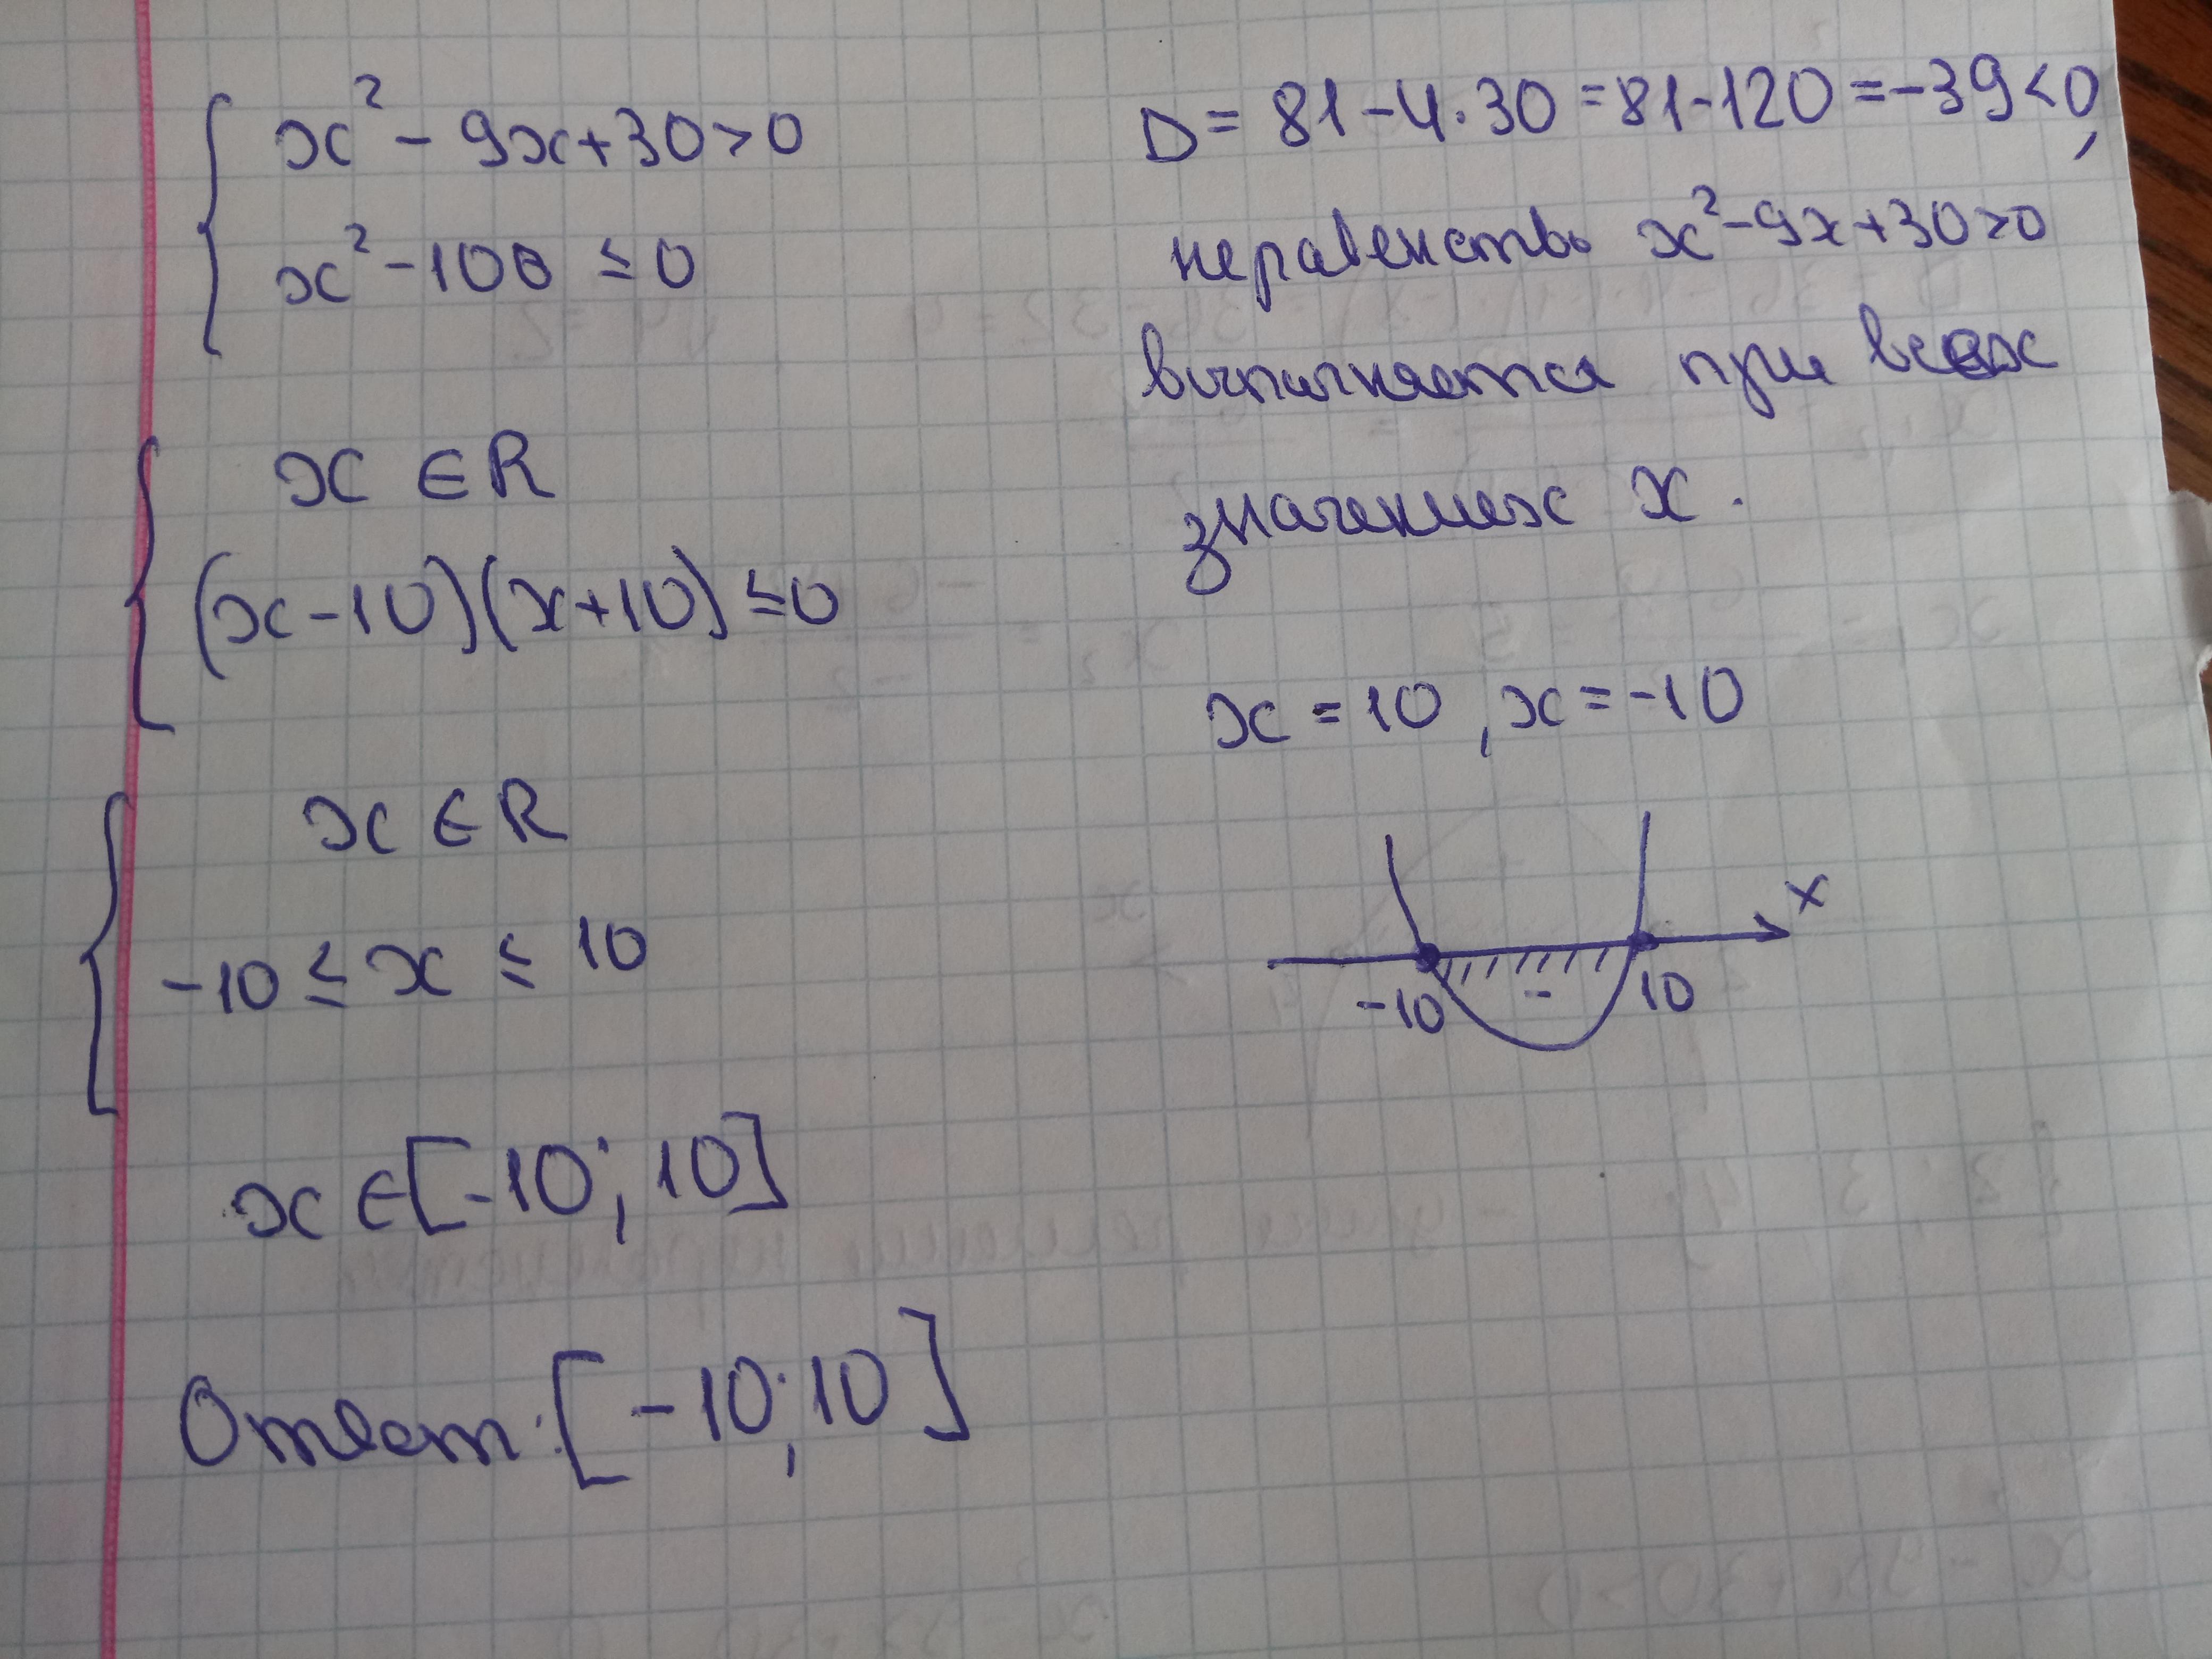 x² - 9x + 30 > 0
x² - 100 ≤ 0
D = 81 - 4 · 30 = 81 - 120 = -39 < 0,
неравенство x² - 9x + 30 > 0
выполняется при всех
значениях x.
x ∈ R
(x - 10)(x + 10) ≤ 0
x = 10, x = -10
x ∈ R
-10 ≤ x ≤ 10
x
-10
-
10
x ∈ [-10; 10]
Ответ: [-10; 10]